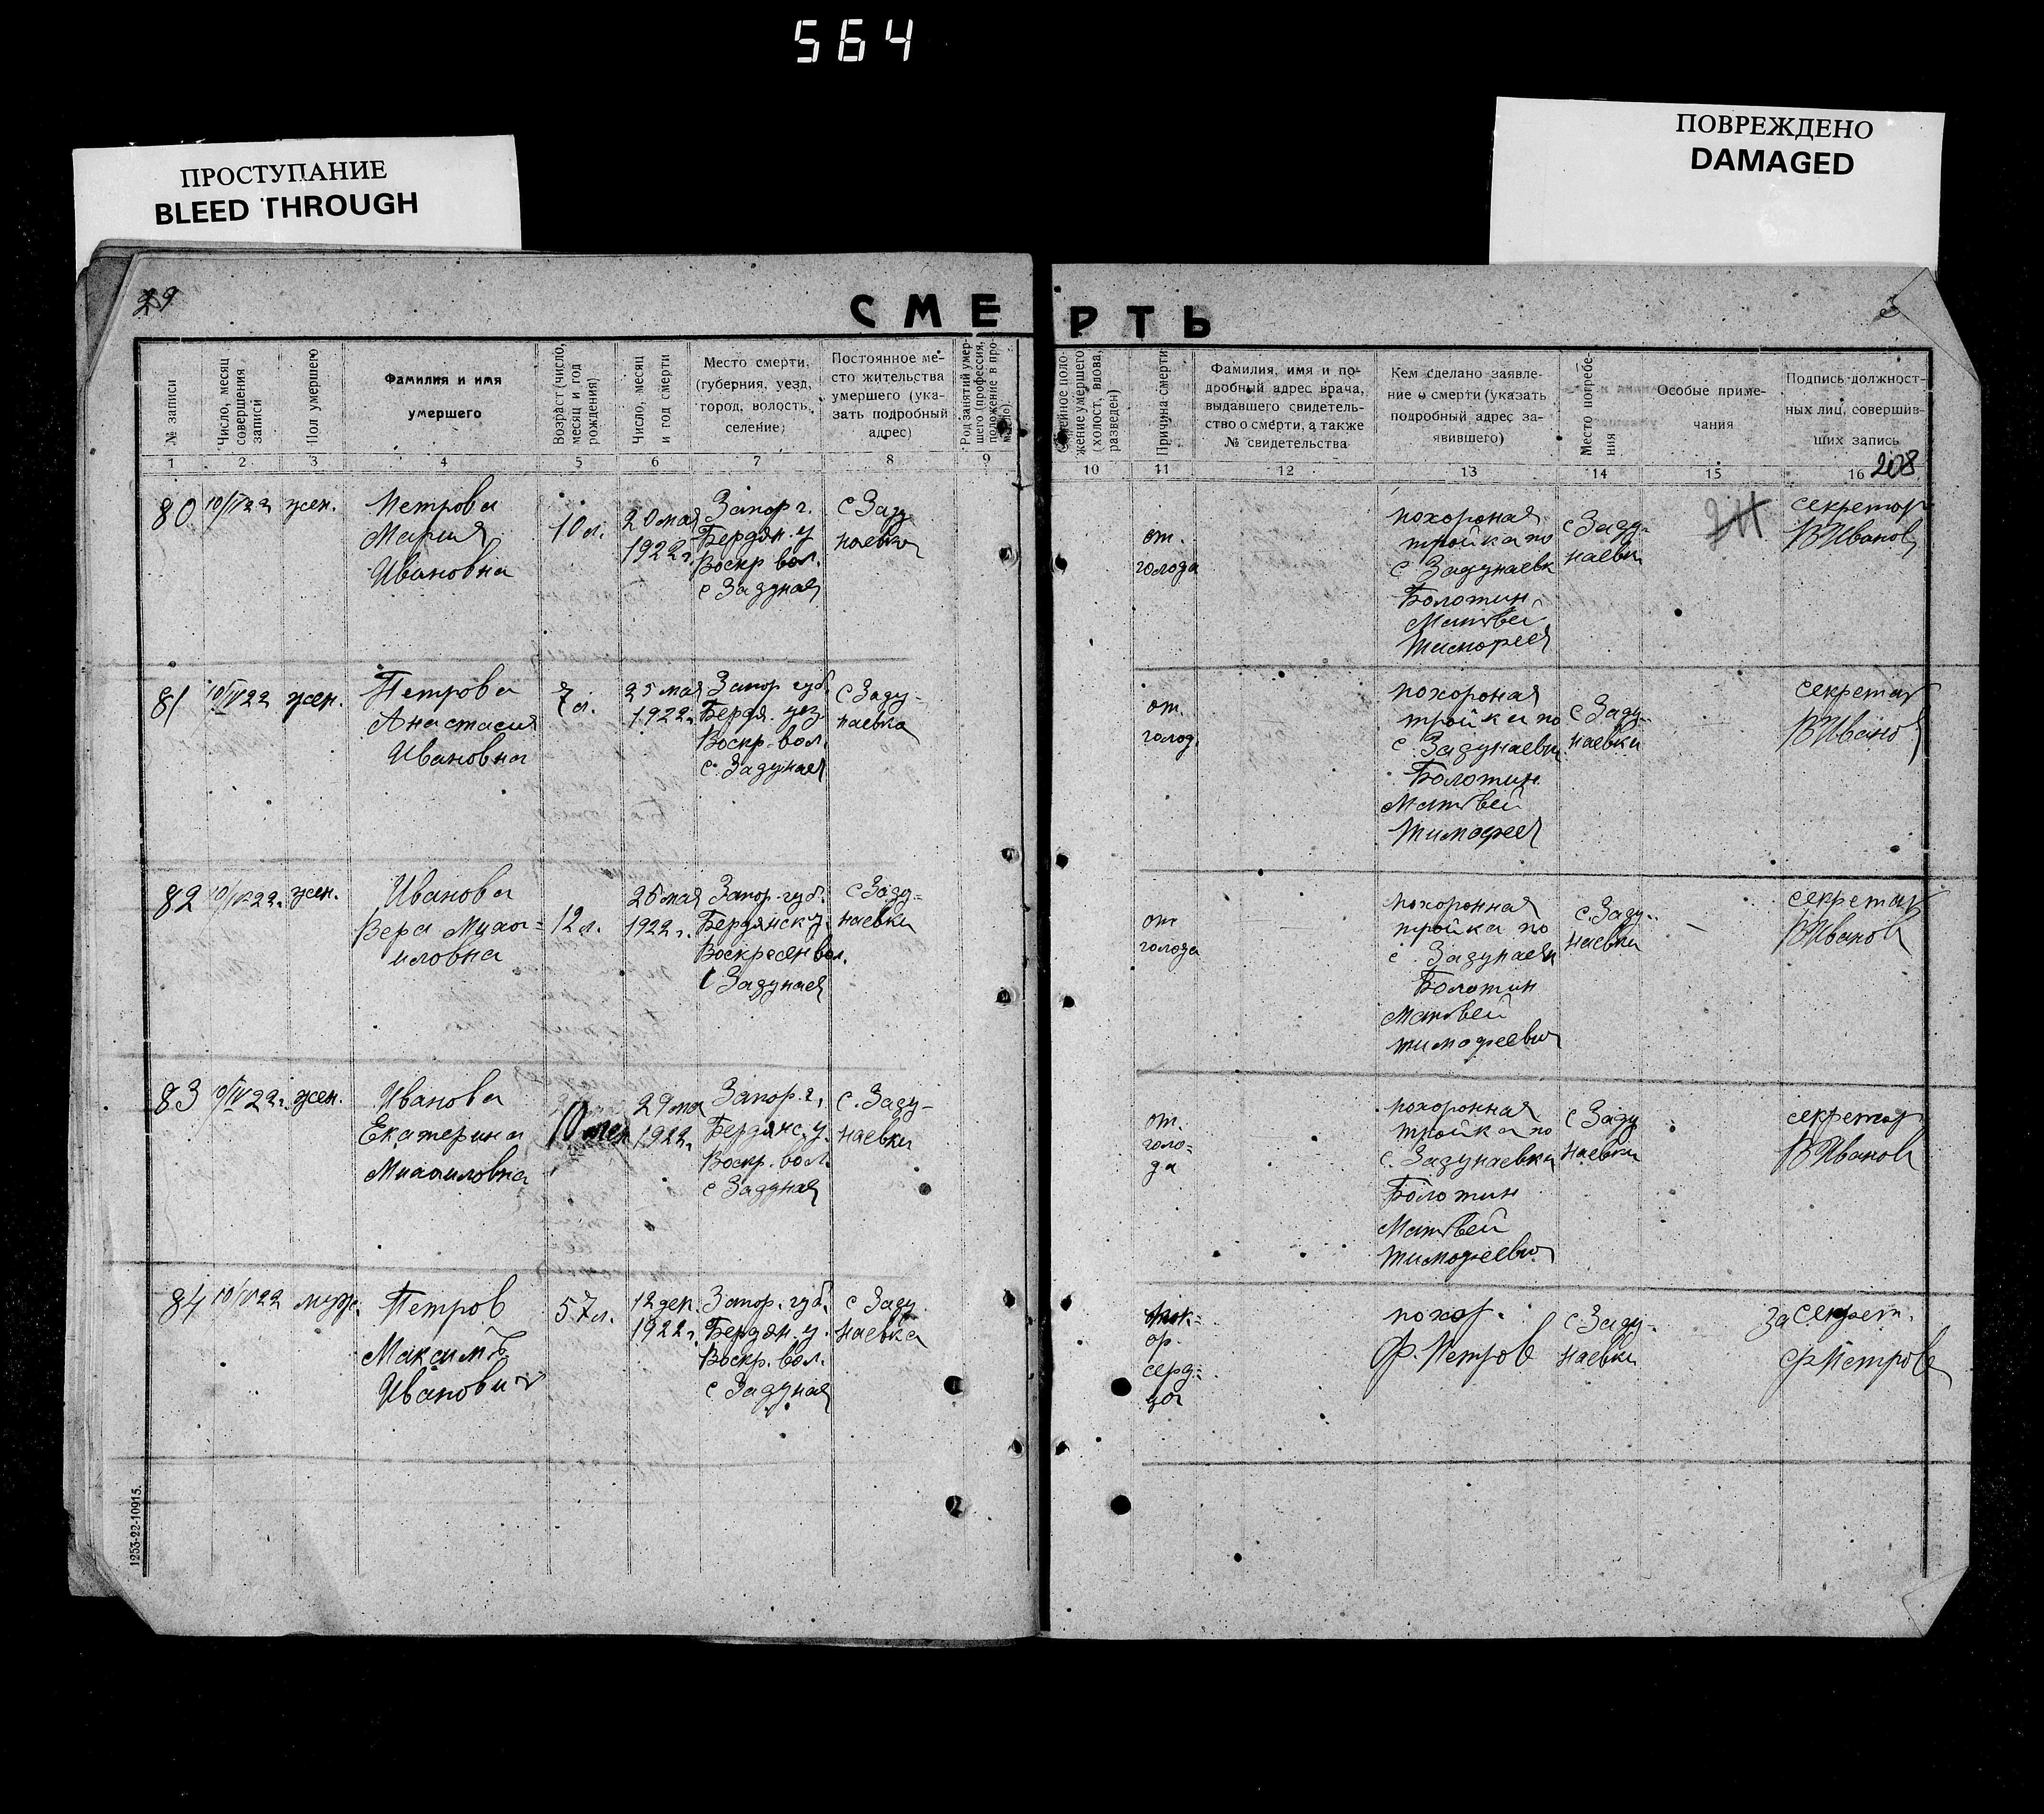 564
ПРОСТУПАНИЕ
BLEED THROUGH
ПОВРЕЖДЕНО
DAMAGED
29
СМЕРТЬ
№ записи
Число, месяц
совершения
записи
Пол умершего
Фамилия и имя
умершего
Возраст (число,
месяц и год
рождения)
Число, месяц
и год смерти
Место смерти,
(губерния, уезд,
город, волость,
селение)
Постоянное ме-
сто жительства
умершего (ука-
зать подробный
адрес)
Род занятий умер-
шего (профессия,
положение в про-
Семейное поло-
жение умершего
(холост, вдова,
разведен)
Причина смерти
Фамилия, имя и по-
дробный адрес врача,
выдавшего свидетель-
ство о смерти, а также
№ свидетельства
Кем сделано заявле-
ние о смерти (указать
подробный адрес за-
явившего)
Место погребе-
ния
Особые приме-
чания
Подпись должност-
ных лиц, совершив-
ших запись
1 2 3 4 5 6 7 8 9 10 11 12 13 14 15 16
208
80
жен.
Петрова
Мария
Ивановна
10 л.
20 мая
1922 г.
Запор г.
Бердян. у
Воскр вол.
с Задуная
с Заду
наевка
от.
голода
похороная
тройка по
с Задунаевк
Болотин
Матвей
Тимофеев
с Заду-
наевки
секретар
ВИванов
81
жен.
Петрова
Анастасия
Ивановна
7 л.
25 мая
1922 г.
Запор губ.
Бердя. уез.
Воскр. вол.
с. Задуная
с Заду-
наевка
от.
голод.
похороная
тройка по
с. Задунаевки
Болотин
Матвей
Тимофеев
с Заду-
наевки
секретар
ВИванов
82
жен.
Иванова
Вера Миха-
иловна
12 л.
1922 г.
Запор. губ.
Бердянск у.
Воскресен вол.
с Задуная
с Заду-
наевки
от
голода
похоронная
тройка по
с. Задунаевк
Болотин
Матвей
Тимофеевич
с. Заду-
наевки
секретар
ВИванов
83
жен.
Иванова
Екатерина
Михаиловна
10 мес
29 мая
1922 г.
Запор. г.
Бердянс. у.
Воскр. вол.
с Задуная
с. Заду-
наевки
от.
голо-
да
похоронная
тройка по
с. Задунаевки
Болотин
Матвей
Тимофеевич
с Заду
наевки
секретар
ВИванов
84
муж.
Петров
Максимъ
Иванович
57 л.
12 дек.
1922 г.
Запор. губ.
Бердян. у.
Воскр. вол.
с Задуная
с Заду
наевка
ор.
серд-
ца
похор.
Ф. Петров
с Заду-
наевки
За секрет.
ФПетров
1253-22-10915.